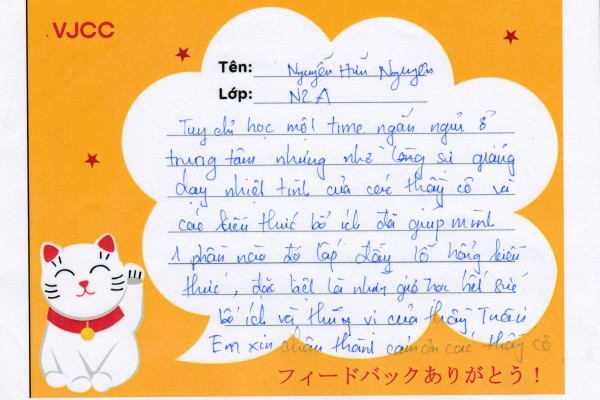 VJCC
Tên: Nguyễn Hữu Nguyên
Lớp: N2A
Tuy chỉ học một time ngắn ngủi ở
trung tâm nhưng nhờ sự giảng
dạy nhiệt tình của các thầy cô và
các kiến thức bổ ích đã giúp mình
1 phần nào đó lấp đầy lỗ hổng kiến
thức, đặc biệt là những giờ học hết sức
bổ ích và thú vị của thầy Tuấn
Em xin chân thành cảm ơn các thầy cô
フィードバックありがとう!